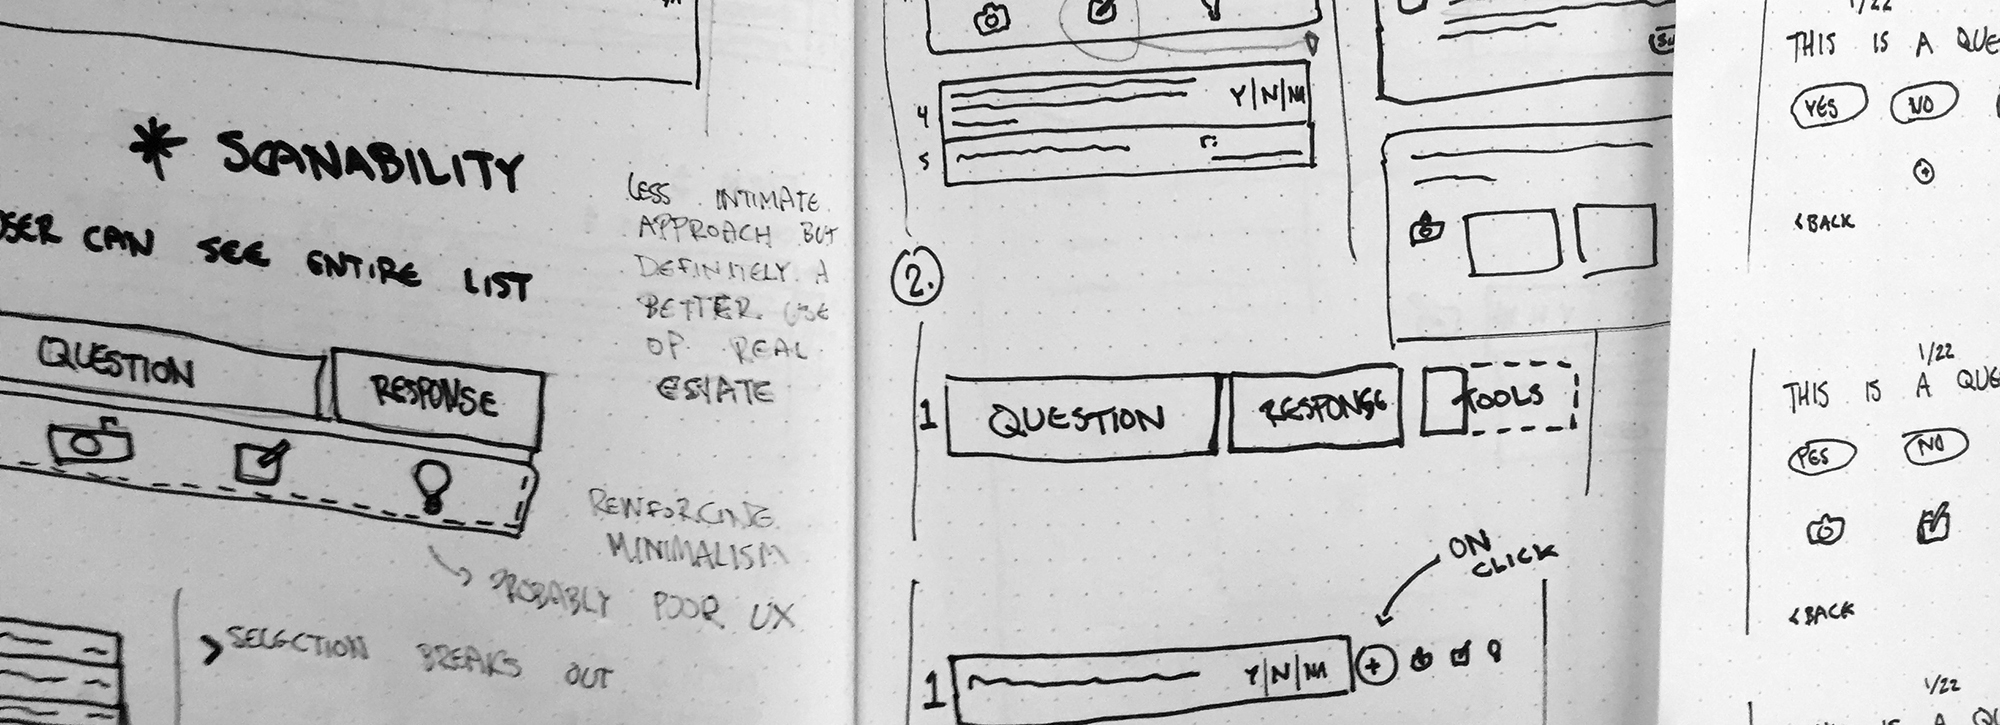 * SCANABILITY
USER CAN SEE ENTIRE LIST
QUESTION
RESPONSE
LESS INTIMATE
APPROACH BUT
DEFINITELY A
BETTER USE
OF REAL
ESTATE
REINFORCING
MINIMALISM
PROBABLY POOR UX
> SELECTION BREAKS OUT
4
Y|N|NA
5
2.
1
QUESTION
RESPONSE
TOOLS
ON
CLICK
1
Y|N|NA
+
1/22
THIS IS A QUE
YES
NO
+
<BACK
1/22
THIS IS A QUE
YES
NO
<BACK
1/22
IS A QU